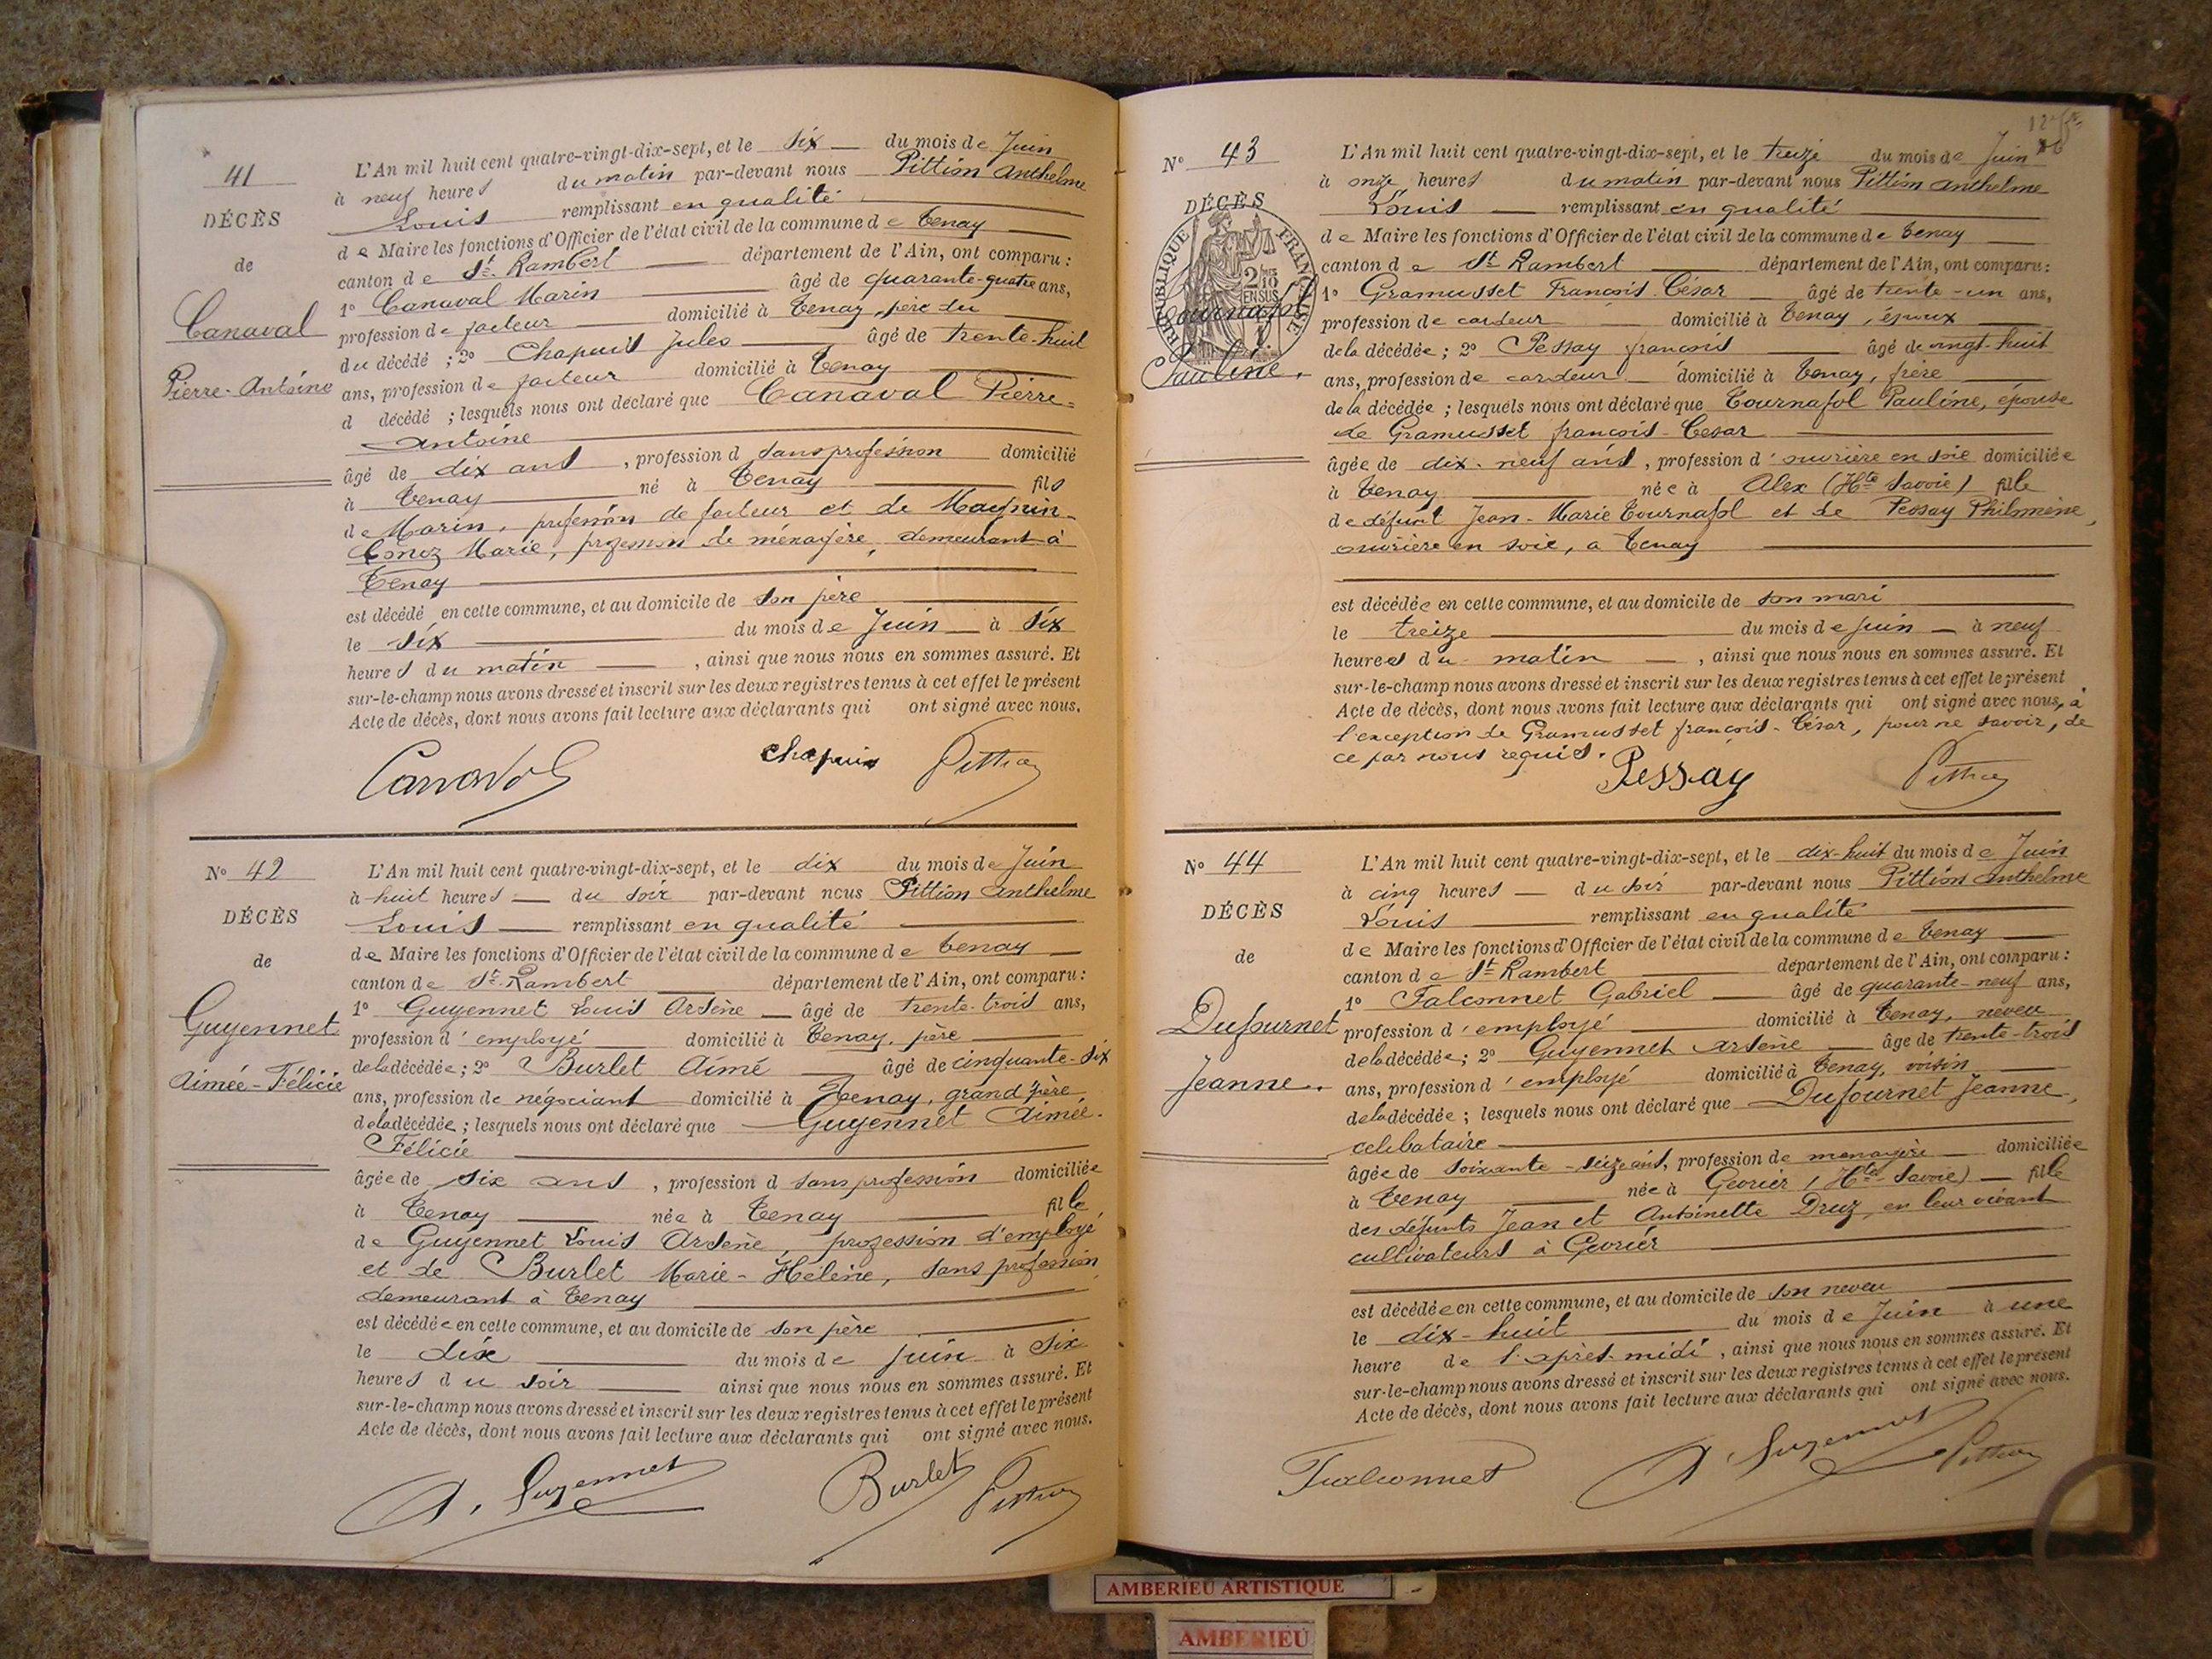 41
DÉCÈS
de
Canaval
Pierre-Antoine
L'An mil huit cent quatre-vingt-dix-sept, et le six du mois de Juin
à neuf heures du matin par-devant nous Pittion Anthelme
Louis remplissant en qualité
de Maire les fonctions d'Officier de l'état civil de la commune de Tenay
canton de St. Rambert département de l'Ain, ont comparu :
1º Canaval Marin âgé de quarante-quatre ans,
profession de facteur domicilié à Tenay, père du
du décédé ; 2º Chapuis Jules âgé de trente-huit
ans, profession de facteur domicilié à Tenay
d décédé ; lesquels nous ont déclaré que Canaval Pierre-
Antoine
âgé de dix ans, profession d sans profession domicilié
à Tenay né à Tenay fils
de Marin, profession de facteur et de
Marie, profession de ménagère, demeurant à
Tenay
est décédé en cette commune, et au domicile de son père
le six du mois de Juin à six
heures du matin, ainsi que nous nous en sommes assuré. Et
sur-le-champ nous avons dressé et inscrit sur les deux registres tenus à cet effet le présent
Acte de décès, dont nous avons fait lecture aux déclarants qui ont signé avec nous.
Canaval chapuis Pittion
Nº 42
DÉCÈS
de
Guyennet
Aimée-Félicie
L'An mil huit cent quatre-vingt-dix-sept, et le dix du mois de Juin
à huit heures du soir par-devant nous Pittion Anthelme
Louis remplissant en qualité
de Maire les fonctions d'Officier de l'état civil de la commune de Tenay
canton de St. Rambert département de l'Ain, ont comparu :
1º Guyennet Louis Arsène âgé de trente-trois ans,
profession d'employé domicilié à Tenay, père
de la décédée ; 2º Burlet Aimé âgé de cinquante-six
ans, profession de négociant domicilié à Tenay, grand père
de la décédée ; lesquels nous ont déclaré que Guyennet Aimée-
Félicie
âgée de six ans, profession d sans profession domiciliée
à Tenay née à Tenay fille
de Guyennet Louis Arsène, profession d'employé
et de Burlet Marie-Hélène, sans profession,
demeurant à Tenay
est décédée en cette commune, et au domicile de son père
le dix du mois de juin à six
heures du soir ainsi que nous nous en sommes assuré. Et
sur-le-champ nous avons dressé et inscrit sur les deux registres tenus à cet effet le présent
Acte de décès, dont nous avons fait lecture aux déclarants qui ont signé avec nous.
A. Guyennet Burlet Pittion
Nº 43
DÉCÈS
RÉPUBLIQUE FRANÇAISE
2/10 EN SUS
Tournafol
Pauline.
L'An mil huit cent quatre-vingt-dix-sept, et le treize du mois de Juin
à onze heures du matin par-devant nous Pittion Anthelme
Louis remplissant en qualité
de Maire les fonctions d'Officier de l'état civil de la commune de Tenay
canton de St. Rambert département de l'Ain, ont comparu :
1º Gramusset François César âgé de trente-un ans,
profession de cardeur domicilié à Tenay, époux
de la décédée ; 2º Pessay françois âgé de vingt-huit
ans, profession de cardeur domicilié à Tenay, frère
de la décédée ; lesquels nous ont déclaré que Tournafol Pauline, épouse
de Gramusset françois-César
âgée de dix-neuf ans, profession d'ouvrière en soie domiciliée
à Tenay née à Alex (Hte Savoie) fille
de défunt Jean-Marie Tournafol et de Pessay Philmène,
ouvrière en soie, a Tenay
est décédée en cette commune, et au domicile de son mari
le treize du mois de juin à neuf
heures du matin, ainsi que nous nous en sommes assuré. Et
sur-le-champ nous avons dressé et inscrit sur les deux registres tenus à cet effet le présent
Acte de décès, dont nous avons fait lecture aux déclarants qui ont signé avec nous, à
l'exception de Gramusset françois-César, pour ne savoir, de
ce par nous requis.
Pessay Pittion
Nº 44
DÉCÈS
de
Dufournet
Jeanne.
L'An mil huit cent quatre-vingt-dix-sept, et le dix-huit du mois de Juin
à cinq heures du soir par-devant nous Pittion Anthelme
Louis remplissant en qualité
de Maire les fonctions d'Officier de l'état civil de la commune de Tenay
canton de St. Rambert département de l'Ain, ont comparu :
1º Falconnet Gabriel âgé de quarante-neuf ans,
profession d'employé domicilié à Tenay, neveu
de la décédée ; 2º Guyennet Arsène âge de trente-trois
ans, profession d'employé domicilié à Tenay, voisin
de la décédée ; lesquels nous ont déclaré que Dufournet Jeanne,
celibataire
âgée de soixante-seize ans, profession de menagère domiciliée
à Tenay née à Gevrier (Hte Savoie) fille
des défunts Jean et Antoinette Druz, en leur vivant
cultivateurs à Gevrier
est décédée en cette commune, et au domicile de son neveu
le dix-huit du mois de Juin à une
heure de l'après-midi, ainsi que nous nous en sommes assuré. Et
sur-le-champ nous avons dressé et inscrit sur les deux registres tenus à cet effet le présent
Acte de décès, dont nous avons fait lecture aux déclarants qui ont signé avec nous.
Falconnet A. Guyennet Pittion
AMBERIEU ARTISTIQUE
AMBERIEU